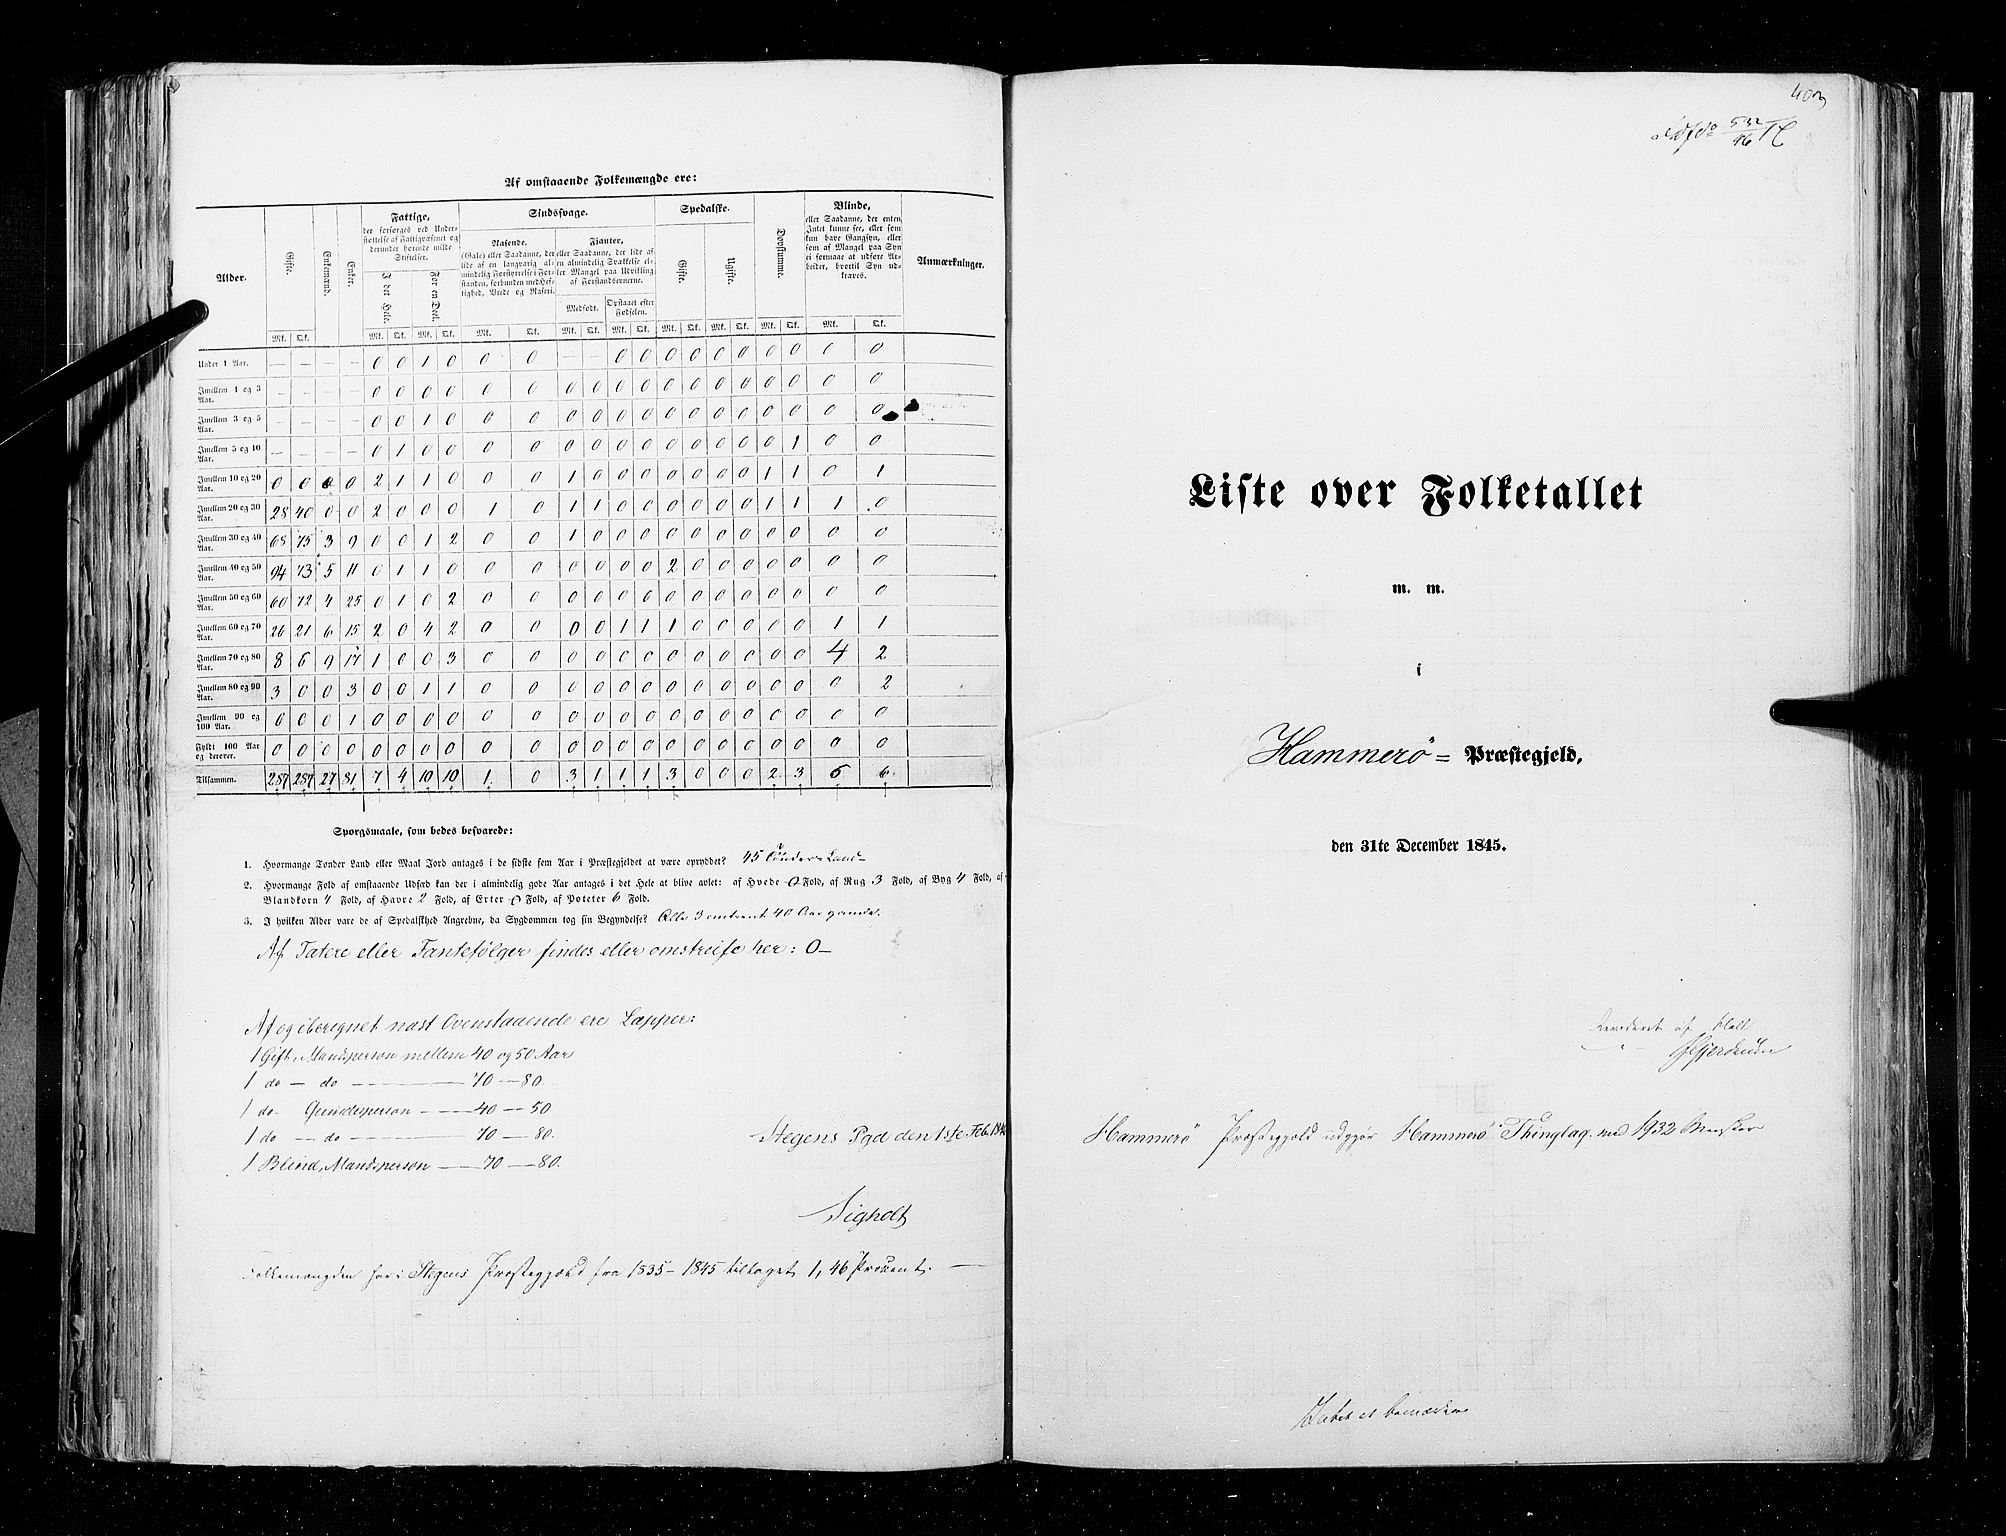 Af omstaaende Folkemængde ere:
Alder. Gifte. Enkemænd. Enker. Fattige, der forsørges ved Understøttelse af Fattigvæsenet og derunder hørende milde Stiftelser. Sindssvage. Spedalske. Døvstumme. Blinde, eller Saadanne, der enten Intet kunne see, eller som kun have Gangsyn, eller som af Mangel paa Syn ei formaae at udføre Arbeider, hvortil Syn udkræves. Anmærkninger.
I det Hele. For en Deel. Rasende. (Gale) eller Saadanne, der lide af en langvarig almindelig Forstyrrelse i Forstanden, forbunden med Heftighed, Vrede og Raseri. Fjanter, eller Saadanne, der lide af en almindelig Svækkelse eller Mangel paa Udvikling af Forstandsevnerne. Gifte. Ugifte.
Medfødt. Opstaaet efter Fødselen.
Mk. Qk. Mk. Qk. Mk. Qk. Mk. Qk. Mk. Qk. Mk. Qk. Mk. Qk. Mk. Qk. Mk. Qk. Mk. Qk.
Under 1 Aar. — — — — 0 0 1 0 0 0 — — 0 0 0 0 0 0 0 0 0 0
Imellem 1 og 3 Aar. — — — — 0 0 0 0 0 0 0 0 0 0 0 0 0 0 0 0 0 0
Imellem 3 og 5 Aar. — — — — 0 0 1 0 0 0 0 0 0 0 0 0 0 0 0 0 0 0
Imellem 5 og 10 Aar. — — — — 0 1 0 0 0 0 0 0 0 0 0 0 0 0 0 1 0 0
Imellem 10 og 20 Aar. 0 0 0 0 2 1 1 0 0 0 1 0 0 0 0 0 0 0 1 1 0 1
Imellem 20 og 30 Aar. 28 40 0 0 2 0 0 0 1 0 1 1 0 0 0 0 0 0 1 1 1 0
Imellem 30 og 40 Aar. 68 75 3 9 0 0 1 2 0 0 1 0 0 0 0 0 0 0 0 0 0 0
Imellem 40 og 50 Aar. 94 73 5 11 0 1 1 0 0 0 0 0 0 0 2 0 0 0 0 0 0 0
Imellem 50 og 60 Aar. 60 72 4 25 0 1 0 2 0 0 0 0 0 0 0 0 0 0 0 0 0 0
Imellem 60 og 70 Aar. 26 21 6 15 2 0 4 2 0 0 0 0 1 1 1 0 0 0 0 0 1 1
Imellem 70 og 80 Aar. 8 6 9 17 1 0 0 3 0 0 0 0 0 0 0 0 0 0 0 0 4 2
Imellem 80 og 90 Aar. 3 0 0 3 0 0 1 1 0 0 0 0 0 0 0 0 0 0 0 0 0 2
Imellem 90 og 100 Aar. 0 0 0 1 0 0 0 0 0 0 0 0 0 0 0 0 0 0 0 0 0 0
Fyldt 100 Aar og derover. 0 0 0 0 0 0 0 0 0 0 0 0 0 0 0 0 0 0 0 0 0 0
Tilsammen. 287 287 27 81 7 4 10 10 1 0 3 1 1 1 3 0 0 0 2 3 6 6
Spørgsmaale, som bedes besvarede:
1. Hvormange Tønder Land eller Maal Jord antages i de sidste fem Aar i Præstegjeldet at være opryddet? 45 Tønder Land
2. Hvormange Fold af omstaaende Udsæd kan der i almindelig gode Aar antages i det Hele at blive avlet: af Hvede 0 Fold, af Rug 3 Fold, af Byg 4 Fold, af
Blandkorn 4 Fold, af Havre 2 Fold, af Erter 0 Fold, af Poteter 6 Fold.
3. I hvilken Alder vare de af Spedalskhed Angrebne, da Sygdommen tog sin Begyndelse? Alle 3 omtrent 40 Aar gamle.
Af Tatere eller Fantefølger findes eller omstreife her: 0—
Af og iberegnet næst Ovenstaaende ere Lapper:
1 Gift, Mandsperson mellem 40 og 50 Aar
1 do — do — 70 — 80
1 do — Qvindesperson — 40 — 50
1 do — do — 70 — 80.
1 Blind, Mandsperson — 70 — 80.
Stegens Pgd den 1ste Feb. 184
Sigholt
Folkemængden har i Stegens Præstegjeld fra 1835–1845 tiltaget 1,46 Procent. —
403
532/46
Liste over Folketallet
m. m.
i
Hammerö = Præstegjeld,
den 31te December 1845.
Revideret af
Hammerö Præstegjeld udgjør Hammerö Thinglag med 1932 Mennesker